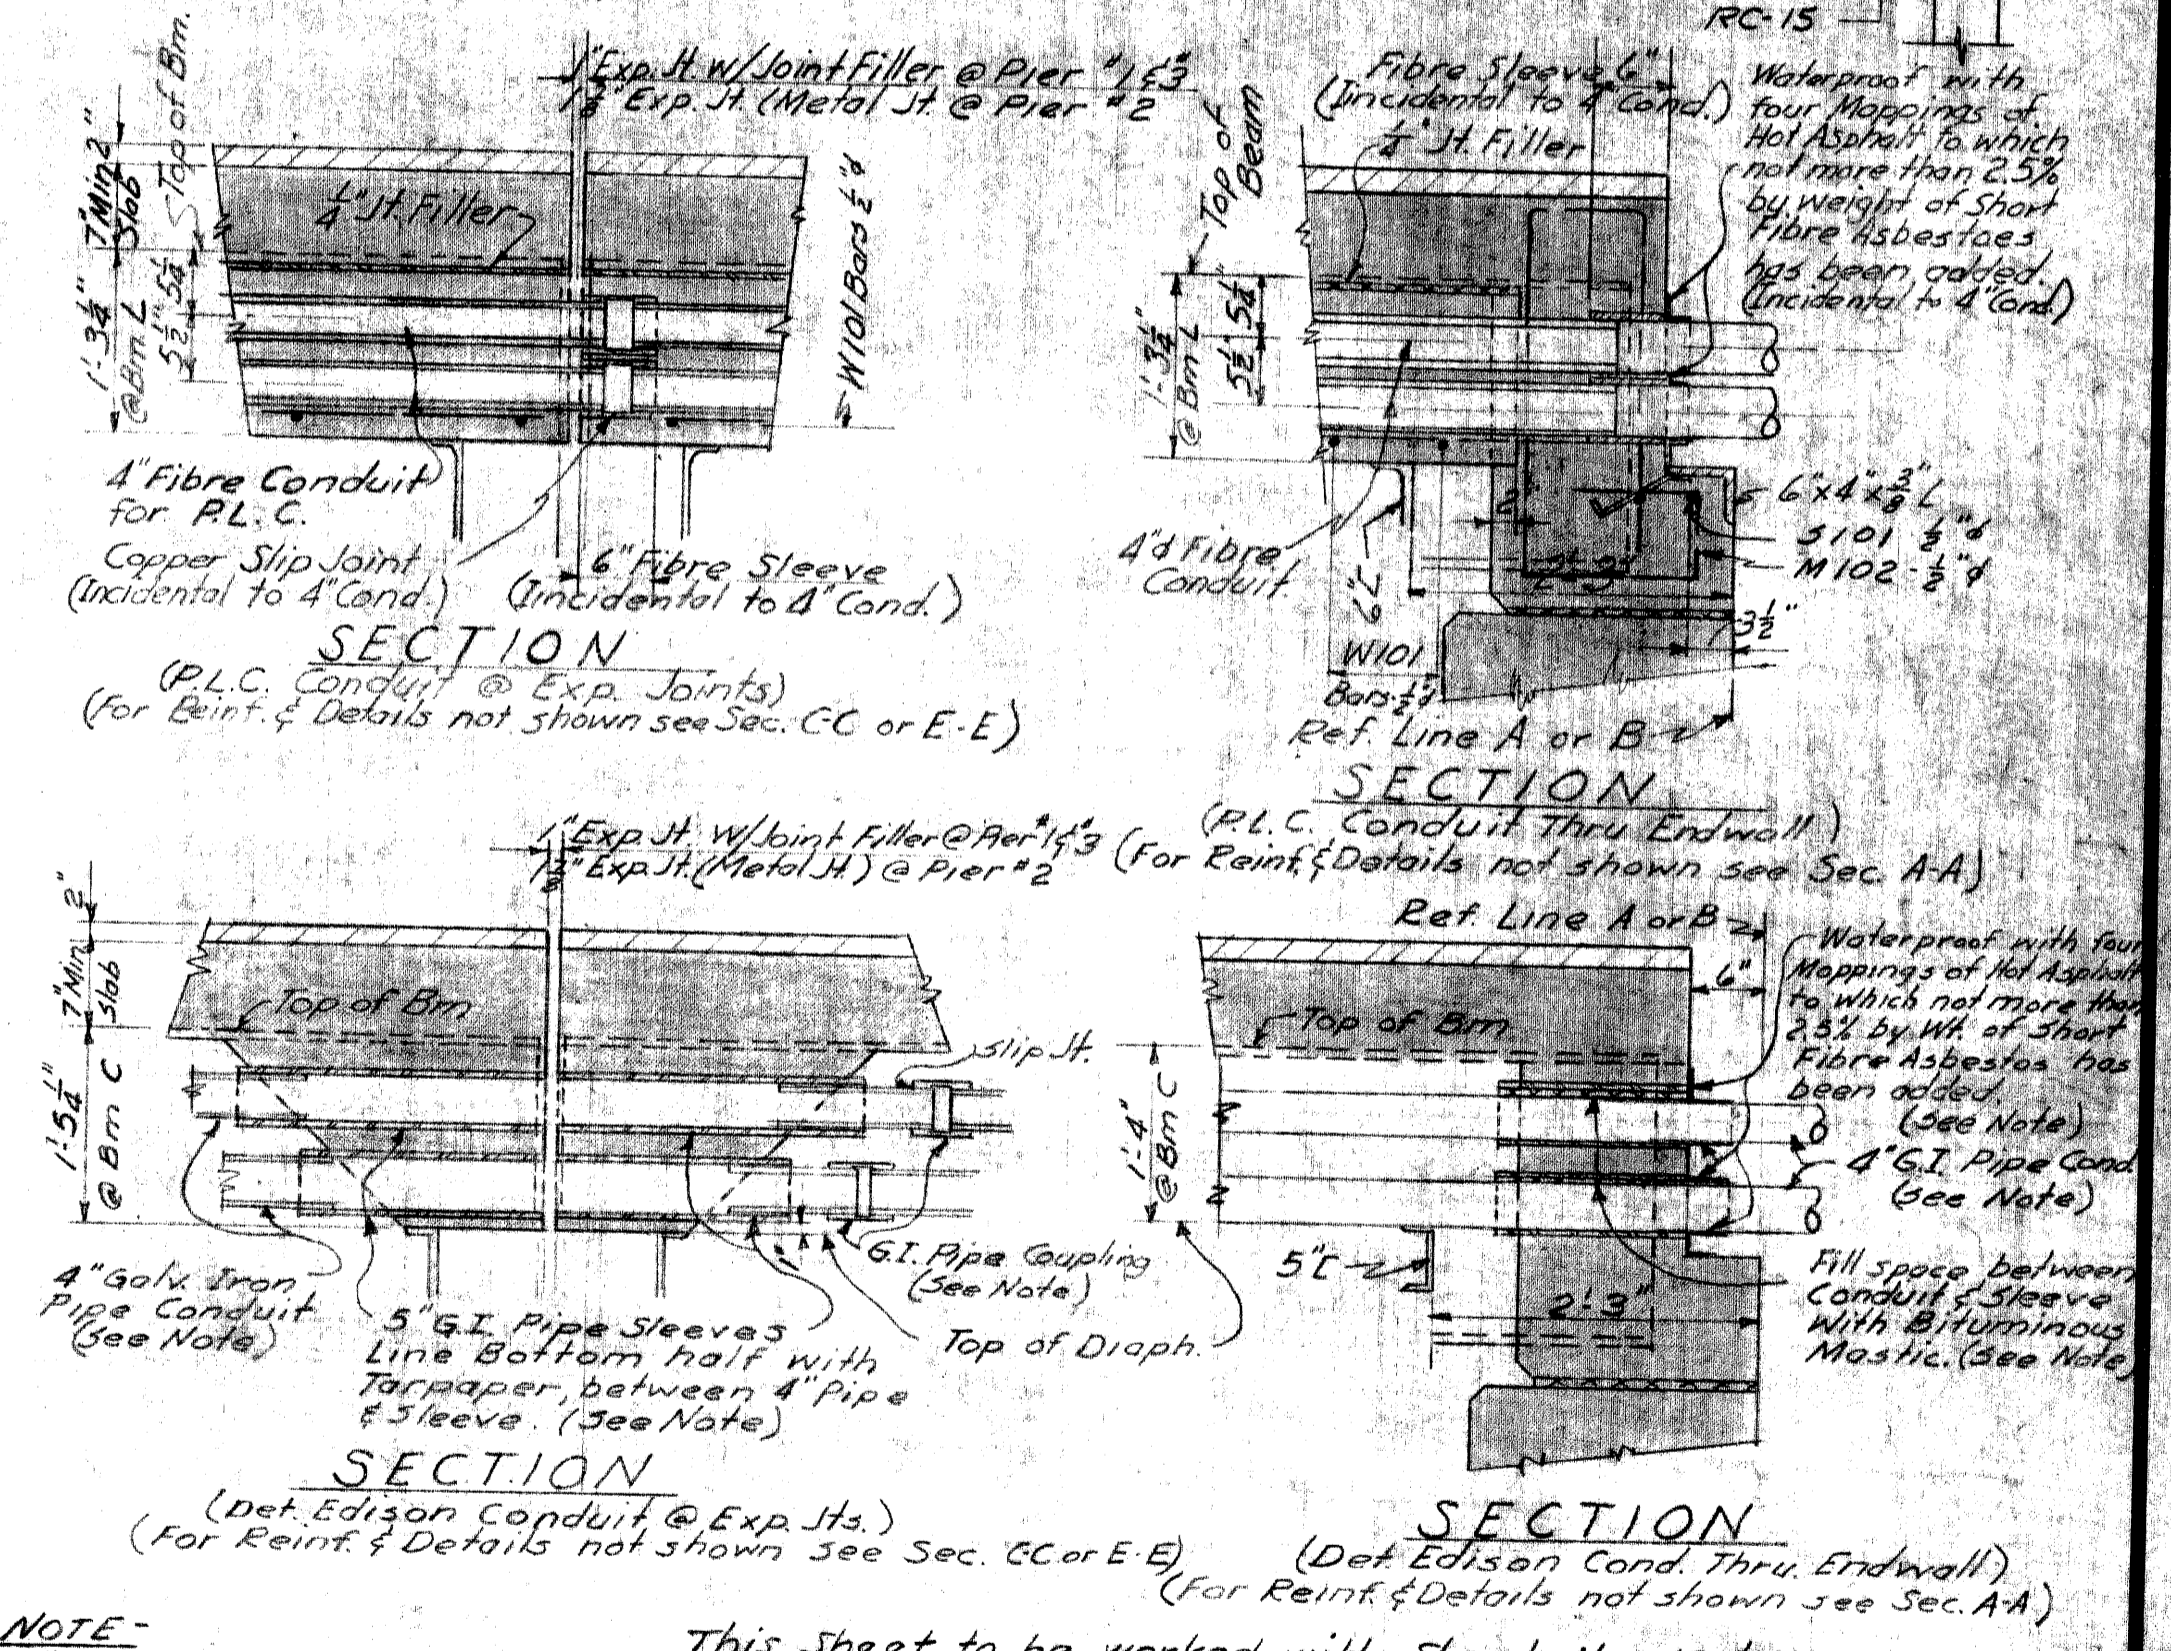 RC-15
1" Exp. Jt. w/Joint Filler @ Pier #1 & #3
1 1/8" Exp. Jt. (Metal Jt. @ Pier #2
2"
7" Min.
Slab
Top of Bm.
1'-3 1/4"
@ Bm. L
5 1/4"
5 1/2"
1/4" Jt. Filler
W101 Bars 1/2" φ
4" Fibre Conduit
for P.L.C.
Copper Slip Joint
(Incidental to 4" Cond.)
6" Fibre Sleeve
(Iincidental to 4" Cond.)
SECTION
(P.L.C. Conduit @ Exp. Joints)
(For Reinf. & Details not shown see Sec. C-C or E-E)
Fibre Sleeve 6"
(Incidental to 4" Cond.)
1/4" Jt. Filler
Top of
Beam
1'-3 1/4"
@ Bm L
5 1/4"
5 1/2"
Waterproof with
four Moppings of
Hot Asphalt to which
not more than 2.5%
by weight of Short
Fibre Asbestoes
has been added.
(Incidental to 4" Cond.)
6"x4"x3/8" L
S101 1/2" φ
M102 - 1/2" φ
2"
3 1/2"
4" φ Fibre
Conduit
6" [
W101
Bars-1/2" φ
Ref. Line A or B
SECTION
(P.L.C. Conduit Thru Endwall)
(For Reinf. & Details not shown see Sec. A-A)
1" Exp. Jt. w/Joint Filler @ Pier #1 & #3
1 1/8" Exp. Jt. (Metal Jt.) @ Pier #2
2"
7" Min.
Slab
1'-5 1/4"
@ Bm C
Top of Bm
Slip Jt.
4" Galv. Iron
Pipe Conduit
(See Note)
5" G.I. Pipe Sleeves
Line Bottom half with
Tarpaper, between 4" Pipe
& Sleeve. (See Note)
G.I. Pipe Coupling
(See Note)
Top of Diaph.
SECTION
(Det. Edison Conduit @ Exp. Jts.)
(For Reinf. & Details not shown see Sec. C-C or E-E)
Ref. Line A or B
6"
Top of Bm
1'-4"
@ Bm C
5" [
2'-3"
Waterproof with four
Moppings of Hot Asphalt
to which not more than
2.5% by Wt. of Short
Fibre Asbestos has
been added.
(See Note)
4" G.I. Pipe Cond.
(See Note)
Fill space between
Conduit & Sleeve
With Bituminous
Mastic. (See Note)
SECTION
(Det. Edison Cond. Thru. Endwall)
(For Reinf. & Details not shown see Sec. A-A)
NOTE-
This Sheet to be worked with